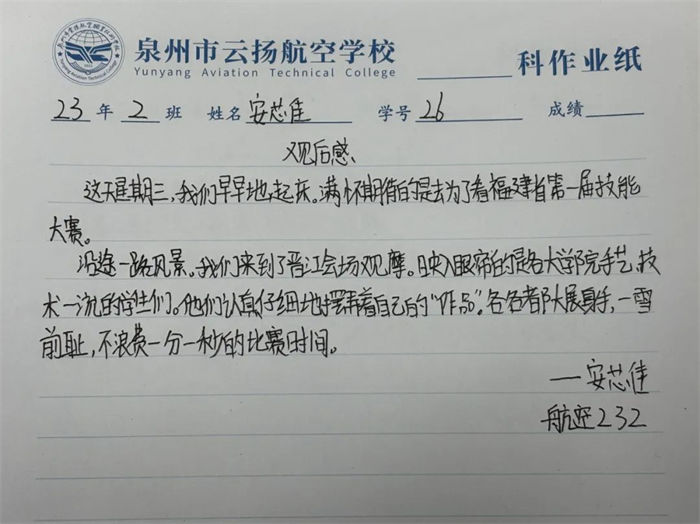 泉州市云扬航空学校
Yunyang Aviation Technical College
科作业纸
23 年 2 班 姓名 安芯佳 学号 26 成绩
观后感
这天星期三,我们早早地起床。满怀期待的是去为了看福建省第一届技能
大赛。
沿途一路风景。我们来到了晋江会场观摩。映入眼帘的是各大学院手艺,技
术一流的学生们。他们认真仔细地摆弄着自己的“作品”。各各都大展身手,一雪
前耻,不浪费一分一秒的比赛时间。
——安芯佳
航空232